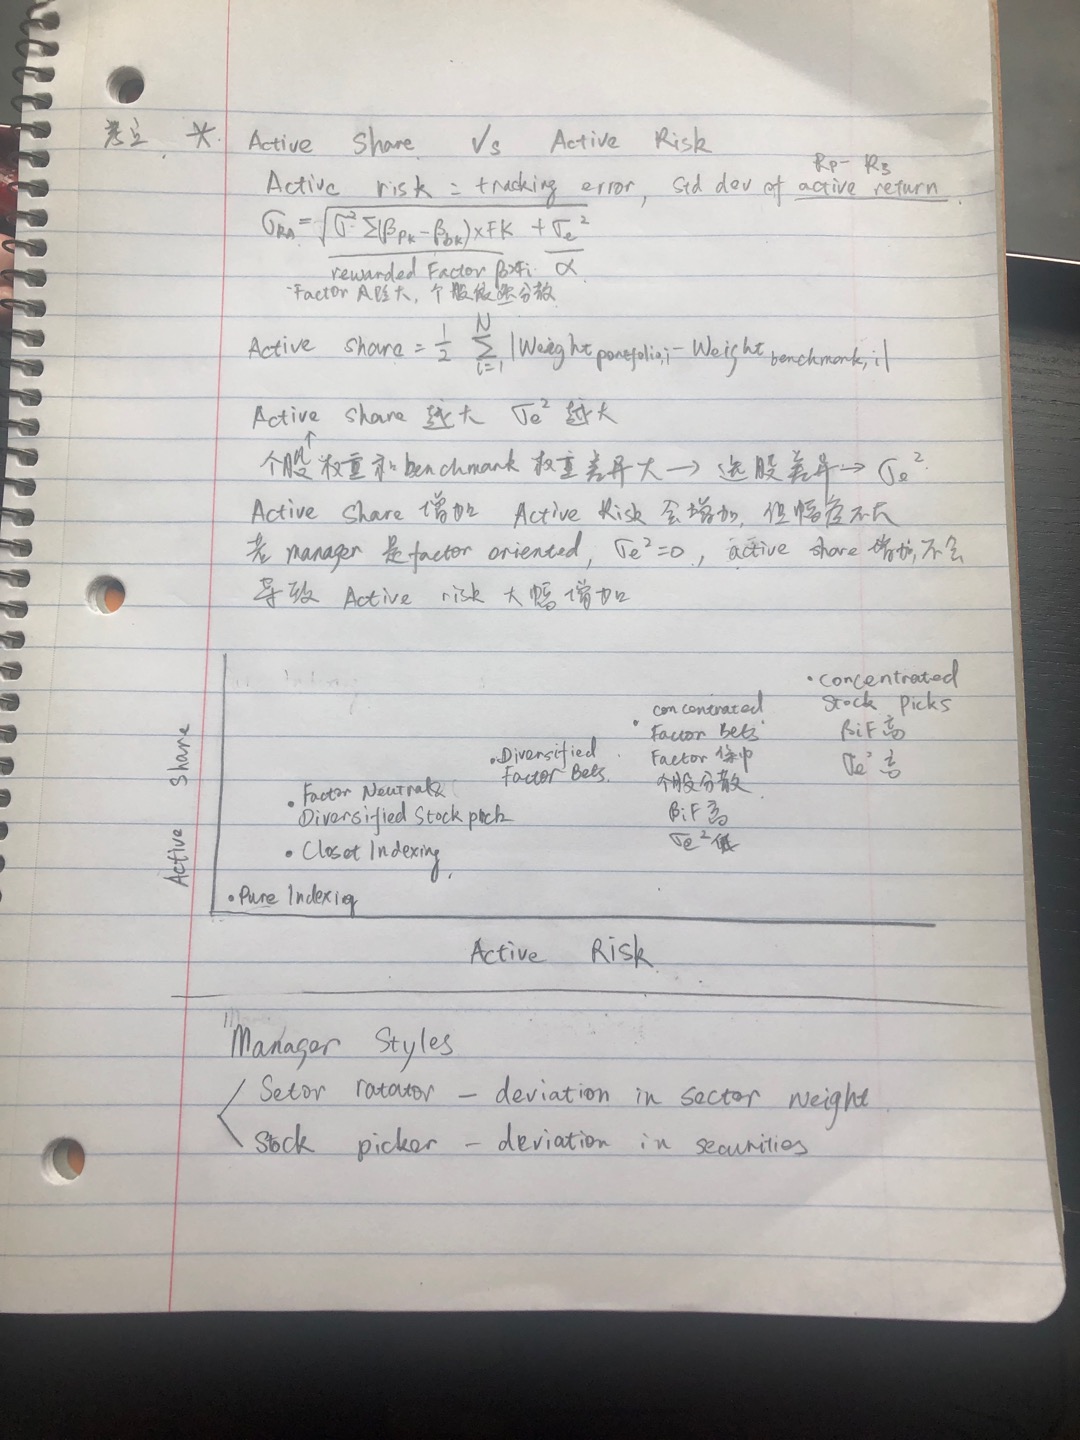 考点 * Active Share Vs Active Risk
RP- RB
Active risk = tracking error, Std dev of active return.
σRA = √σ² Σ(βpk-βbk)×FK + σe²
rewarded Factor β×Fi α
Factor 风险大, 个股很分散
Active share = 1/2 Σ i=1 N |Weight portfolio,i - Weight benchmark,i|
Active share 越大 σe² 越大
↑
个股权重和benchmark 权重差异大 → 选股差异 → σe²
Active Share 增加 Active Risk 会增加, 但幅度不大
若 manager 是 factor oriented, σe²=0, active share 增加, 不会
导致 Active risk 大幅增加
Active Share
• Concentrated
Stock Picks
βiF高
σe²高
• concentrated
Factor Bets
Factor 集中
个股分散
βiF高
σe²低
• Diversified
Factor Bets.
• Factor Neutral &
Diversified Stock pick
• Closet Indexing
• Pure Indexig
Active Risk
Manager Styles
Setor ratator - deviation in sector weight
Stock picker - deviation in securities